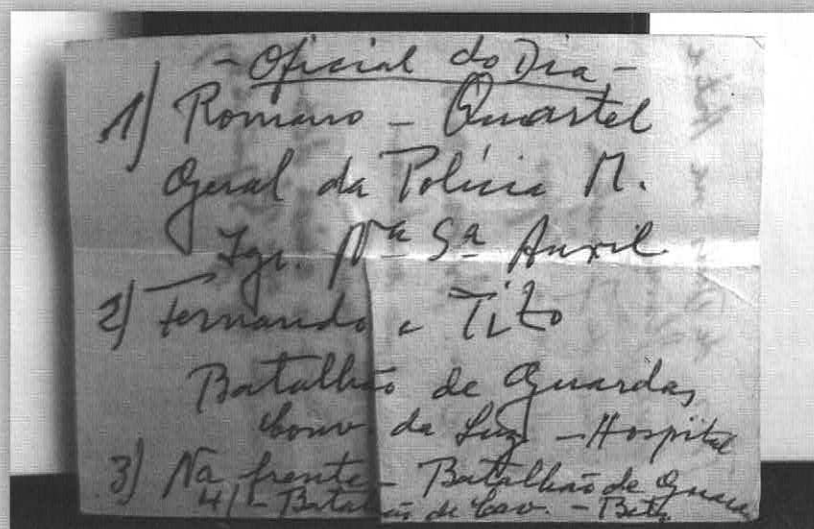 - Oficial do Dia -
1) Romano - Quartel
Geral da Polícia M.
Igr. Nª Sª Auxil
2) Fernando e Tito
Batalhão de Guardas
Conv. da Luz - Hospital
3) Na frente - Batalhão de Guardas
4) - Batalhão de Cav. -